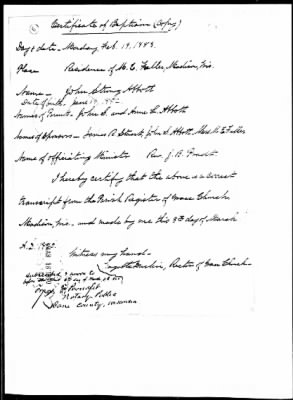 Certificate of Baptism (Copy)
Day & date - Monday Feb. 19, 1883.
Place Residence of M. E. Fuller, Madison, Wis.
Name - John Strong Abbott
Date of birth. June 19, 1882.
Names of Parents - John S. and Anne E. Abbott
Names of Sponsors - James R. Stuart, John S. Abbott, Mrs. M. E. Fuller
Name of officiating Minister Rev. J. B.
I hereby certify that the above is a correct
transcript from the Parish Register of Grace Church
Madison, Wis. and made by me this 8th day of March
A.D.
Witness my hand -
Rector of Grace Church -
Subscribed & sworn to
before me this 8th day of March
Notary Public
Dane County, Wisconsin